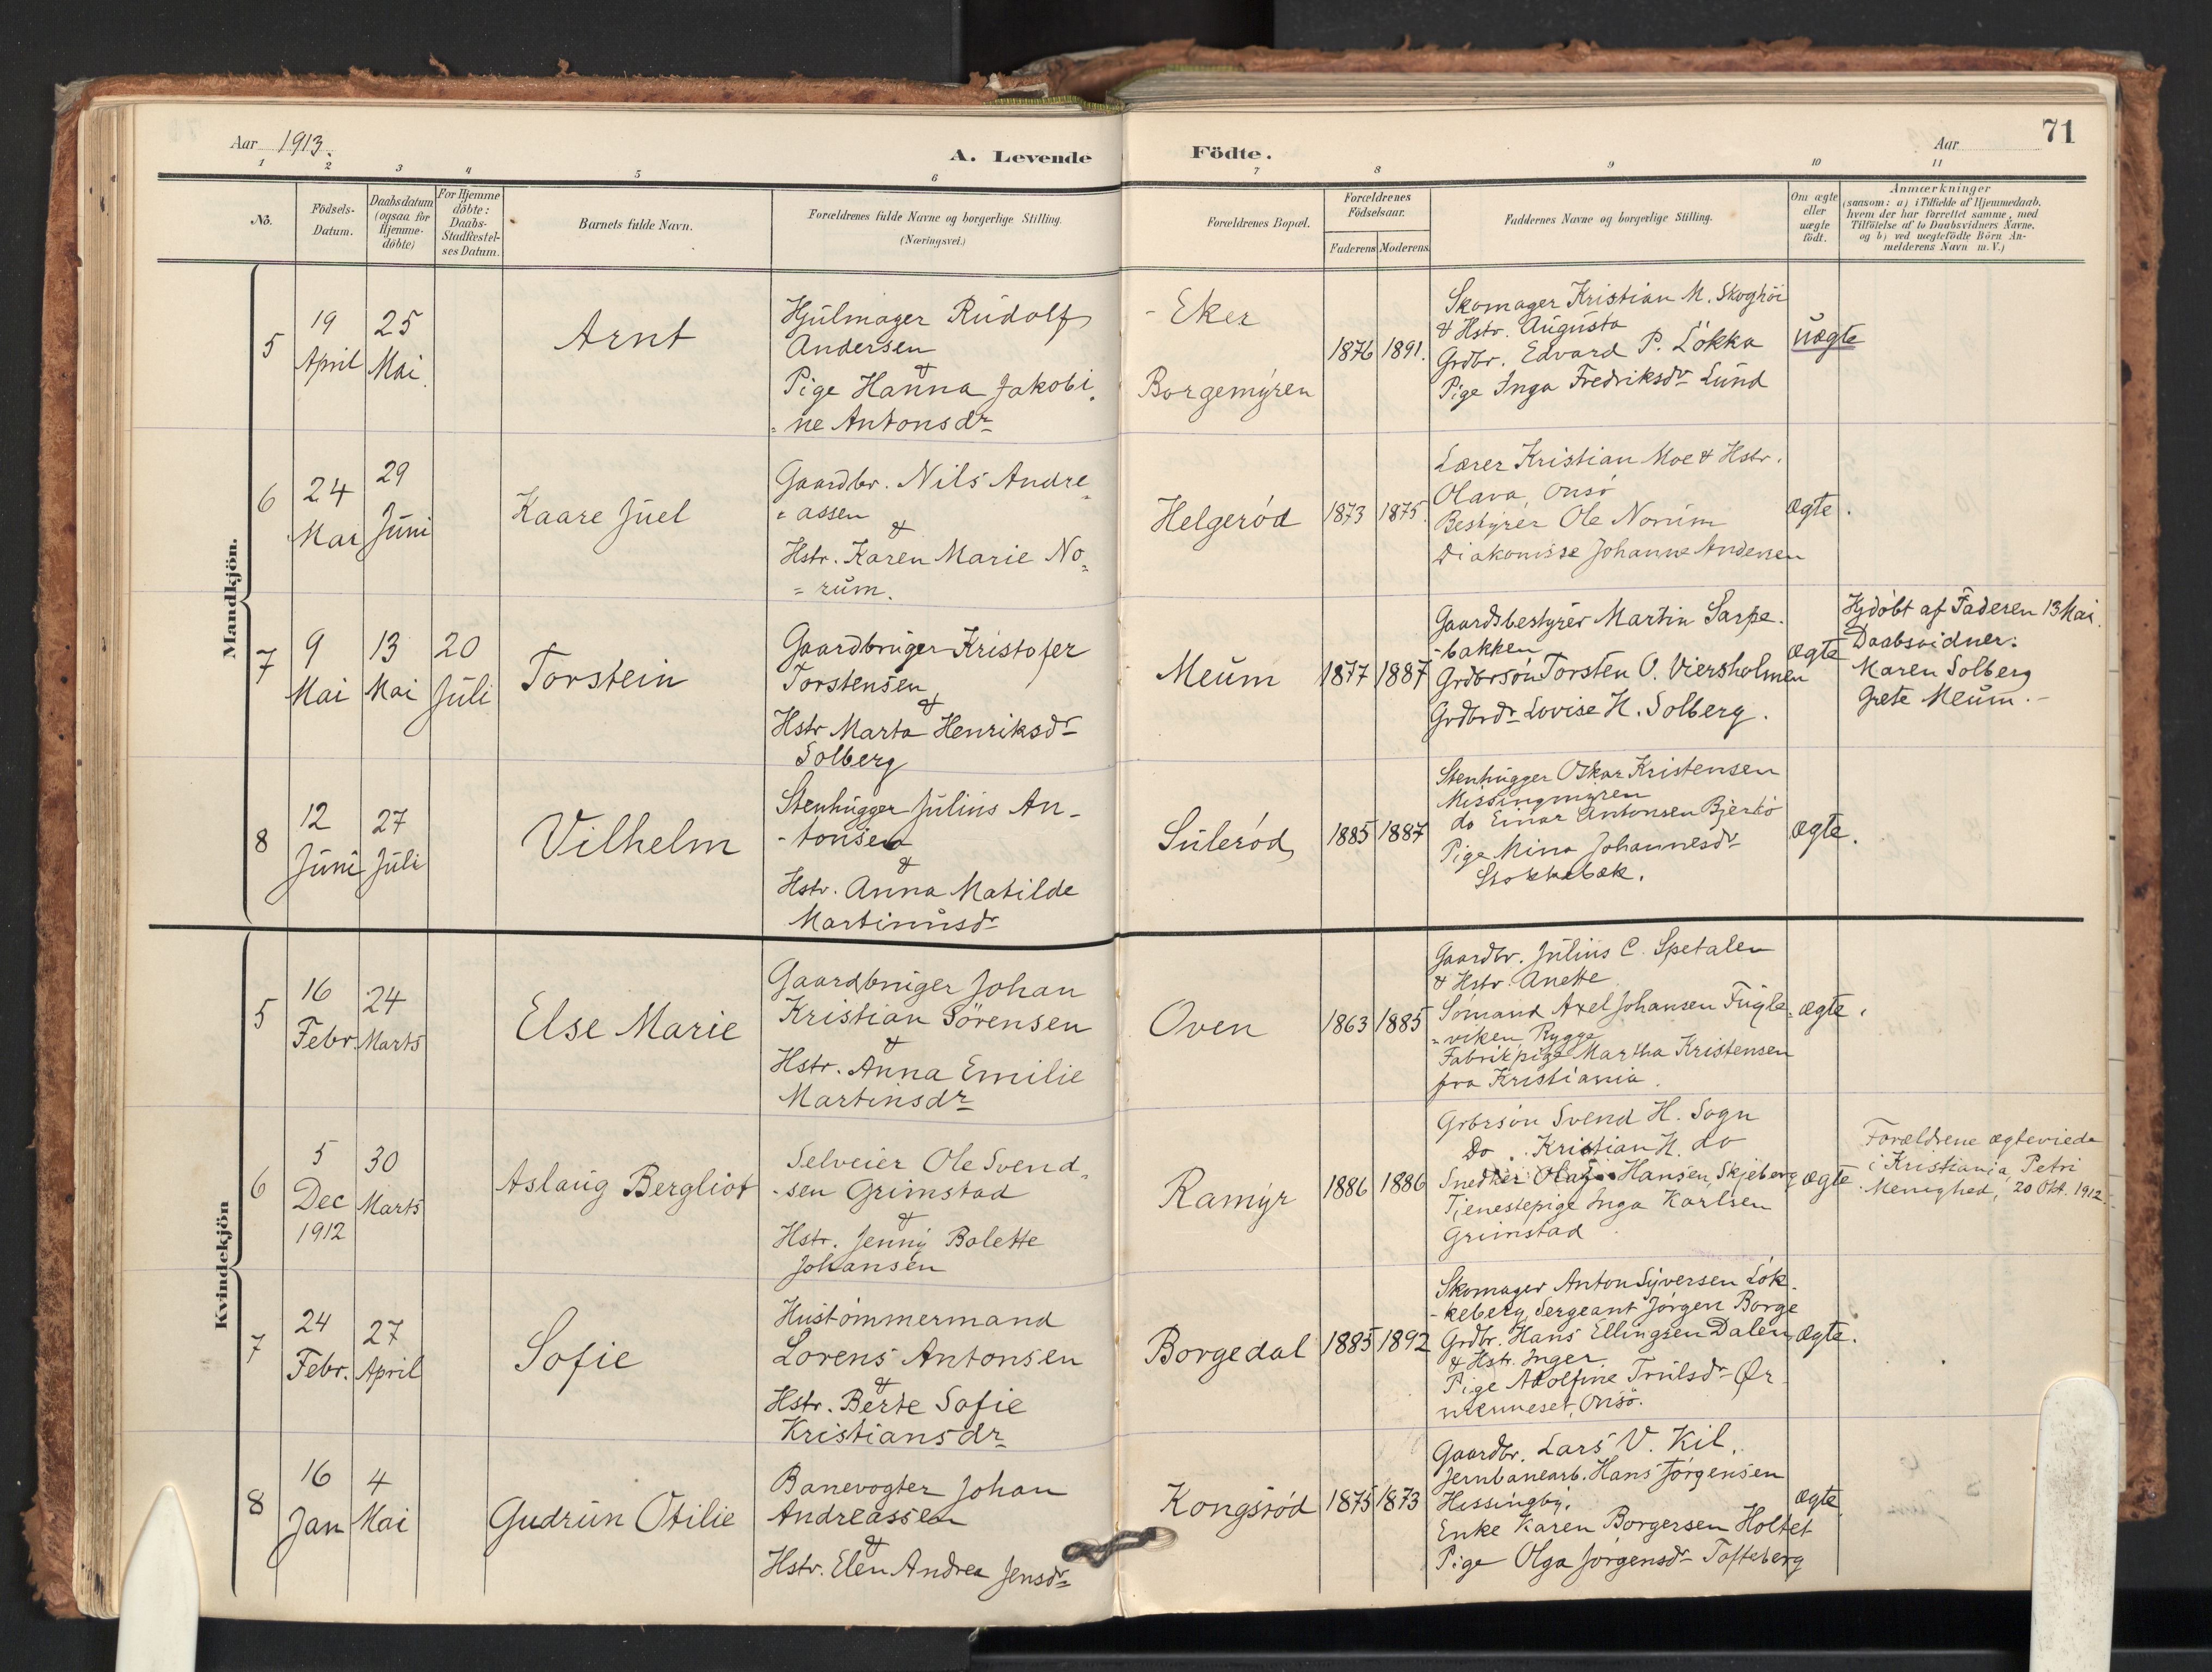 Aar 1913.
A. Levende Födte.
Aar
71
1 2 3 4 5 6 7 8 9 10 11
Nò.
Födsels-Datum.
Daabsdatum (ogsaa for Hjemme-döbte)
For Hjemme döbte: Daabs-Stadfæstel-ses Datum.
Barnets fulde Navn.
Forældrenes fulde Navne og borgerlige Stilling. (Næringsvei.)
Forældrenes Bopæl.
Forældrenes Födselsaar.
Faderens Moderens
Faddernes Navne og borgerlige Stilling.
Om ægte eller uægte födt.
Anmærkninger
(saasom: a) i Tilfælde af Hjemmedaab, hvem der har forrettet samme, med Tilföielse af to Daabsvidners Navne, og b) ved uægtefödte Börn An-melderens Navn m. V.)
Mandkjön.
5
19 April
25 Mai.
Arnt
Hjulmager Rudolf
Andersen
&
Pige Hanna Jakobi
-ne Antonsdr
- Eker
Borgemyren
1876
1891.
Skomager Kristian M. Skoghöi
& Hstr. Augusta
Grdbr. Edvard P. Lökka
Pige Inga Fredriksdr Lund
uægte
6
24 Mai
29 Juni
Kaare Juel
Gaardbr. Nils Andre
= assen
&
Hstr. Karen Marie No
= rum.
Helgeröd
1873
1875.
Lærer Kristian Moe & Hstr.
Olava, Onsö
Bestyrer Ole Norum
Diakonisse Johanne Andersen
ægte.
7
9 Mai
13 Mai
20 Juli
Torstein
Gaardbruger Kristofer
Torstensen
&
Hstr Marta Henriksdr
Solberg
Meum
1877
1887
Gaardsbestyrer Martin Sarpe-
-bakken
Grdbrsön Torsten O. Viersholmen
Grdbrdr Lovise H. Solberg.
ægte
Hjdöbt af Faderen 13 Mai.
Daabsvidner:
Maren Solberg
Grete Meum.-
8
12 Juni
27 Juli
Vilhelm
Stenhugger Julius An-
-tonsen
&
Hstr. Anna Matilde
Martinusdr
Suleröd
1885
1887
Stenhugger Oskar Kristensen
Missingmyren
do Einar Antonsen Bjerkö
Pige Mina Johannesdr
Stokkebæk.
ægte.
Kvindekjön
5
16 Febr.
24 Marts
Else Marie
Gaardbruger Johan
Kristian Sörensen
&
Hstr. Anna Emilie
Martinsdr
Oven
1863
1885
Gaardbr. Julius C. Spetalen
& Hstr. Anette
Sömand Axel Johansen Fugle-
-viken, Rygge
Fabrikpige Martha Kristensen
fra Kristiania.
ægte.
6
5 Dec 1912
30 Marts
Aslaug Bergliot
Selveier Ole Svend-
-sen Grimstad
&
Hstr. Jenny Bolette
Johansen
Ramyr
1886
1886
Grbrsön Svend H. Sogn
Do. Kristian H. do
Snedker Olaf Hansen, Skjeberg
Tjenestepige Inga Karlsen
Grimstad
ægte
Forældrene ægteviede
i Kristiania, Petri
Menighed, 20 Okt. 1912.
7
24 Febr.
27 April
Sofie
Hustömmermand
Lorens Antonsen
&
Hstr. Berte Sofie
Kristiansdr
Borgedal
1885
1892
Skomager Anton Syversen Lök-
-keberg, Sergeant Jörgen Borge
Grdbr. Hans Ellingsen Dalen
& Hstr. Inger
Pige Adolfine Trulsdr Ør
Onsö.
ægte.
8
16 Jan
4 Mai
Gudrun Otilie
Banevogter Johan
Andreassen
&
Hstr. Elen Andrea Jensdr
Kongsröd
1875
1873
Gaardbr. Lars V. Kil.
Jernbanearb. Hans Jörgensen
Enke Karen Borgersen Holtet
Pige Olga Jörgensdr Tofteberg
ægte